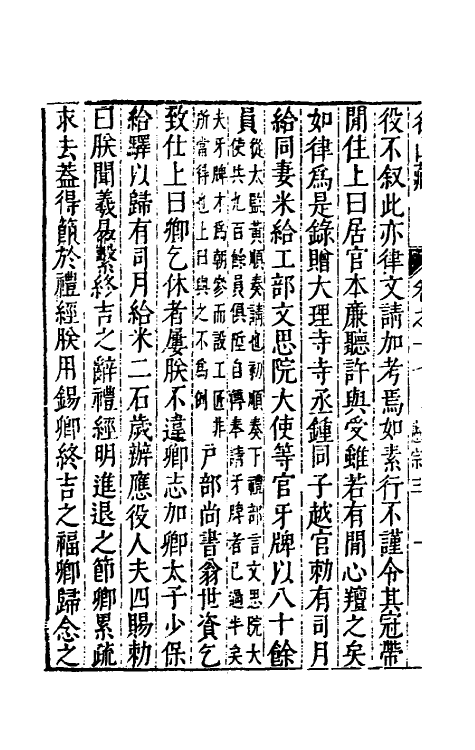 役不叙此亦律文請加考焉如素行不謹令其冠帶
閒住上曰居官本亷聽許與受雖若有閒心羶之矣
如律爲是錄贈大理寺寺丞鍾同子越官勅有司月
給同妻米給工部文思院大使等官牙牌以八十餘
員
從太監黃順奏請也初順奏下禮部言文思院大
使共九百餘員俱陞自傳奉請牙牌者已過半矣
夫牙牌才爲朝參而設工匠非
所當得也上曰與之不爲例
戶部尚書翁世資乞
致仕上曰卿乞休者屢朕不違卿志加卿太子少保
給驛以歸有司月給米二石歲辦應役人夫四賜勅
曰朕聞羲易繫終吉之辭禮經明進退之節卿累疏
求去葢得節於禮經朕用錫卿終吉之福卿歸念之